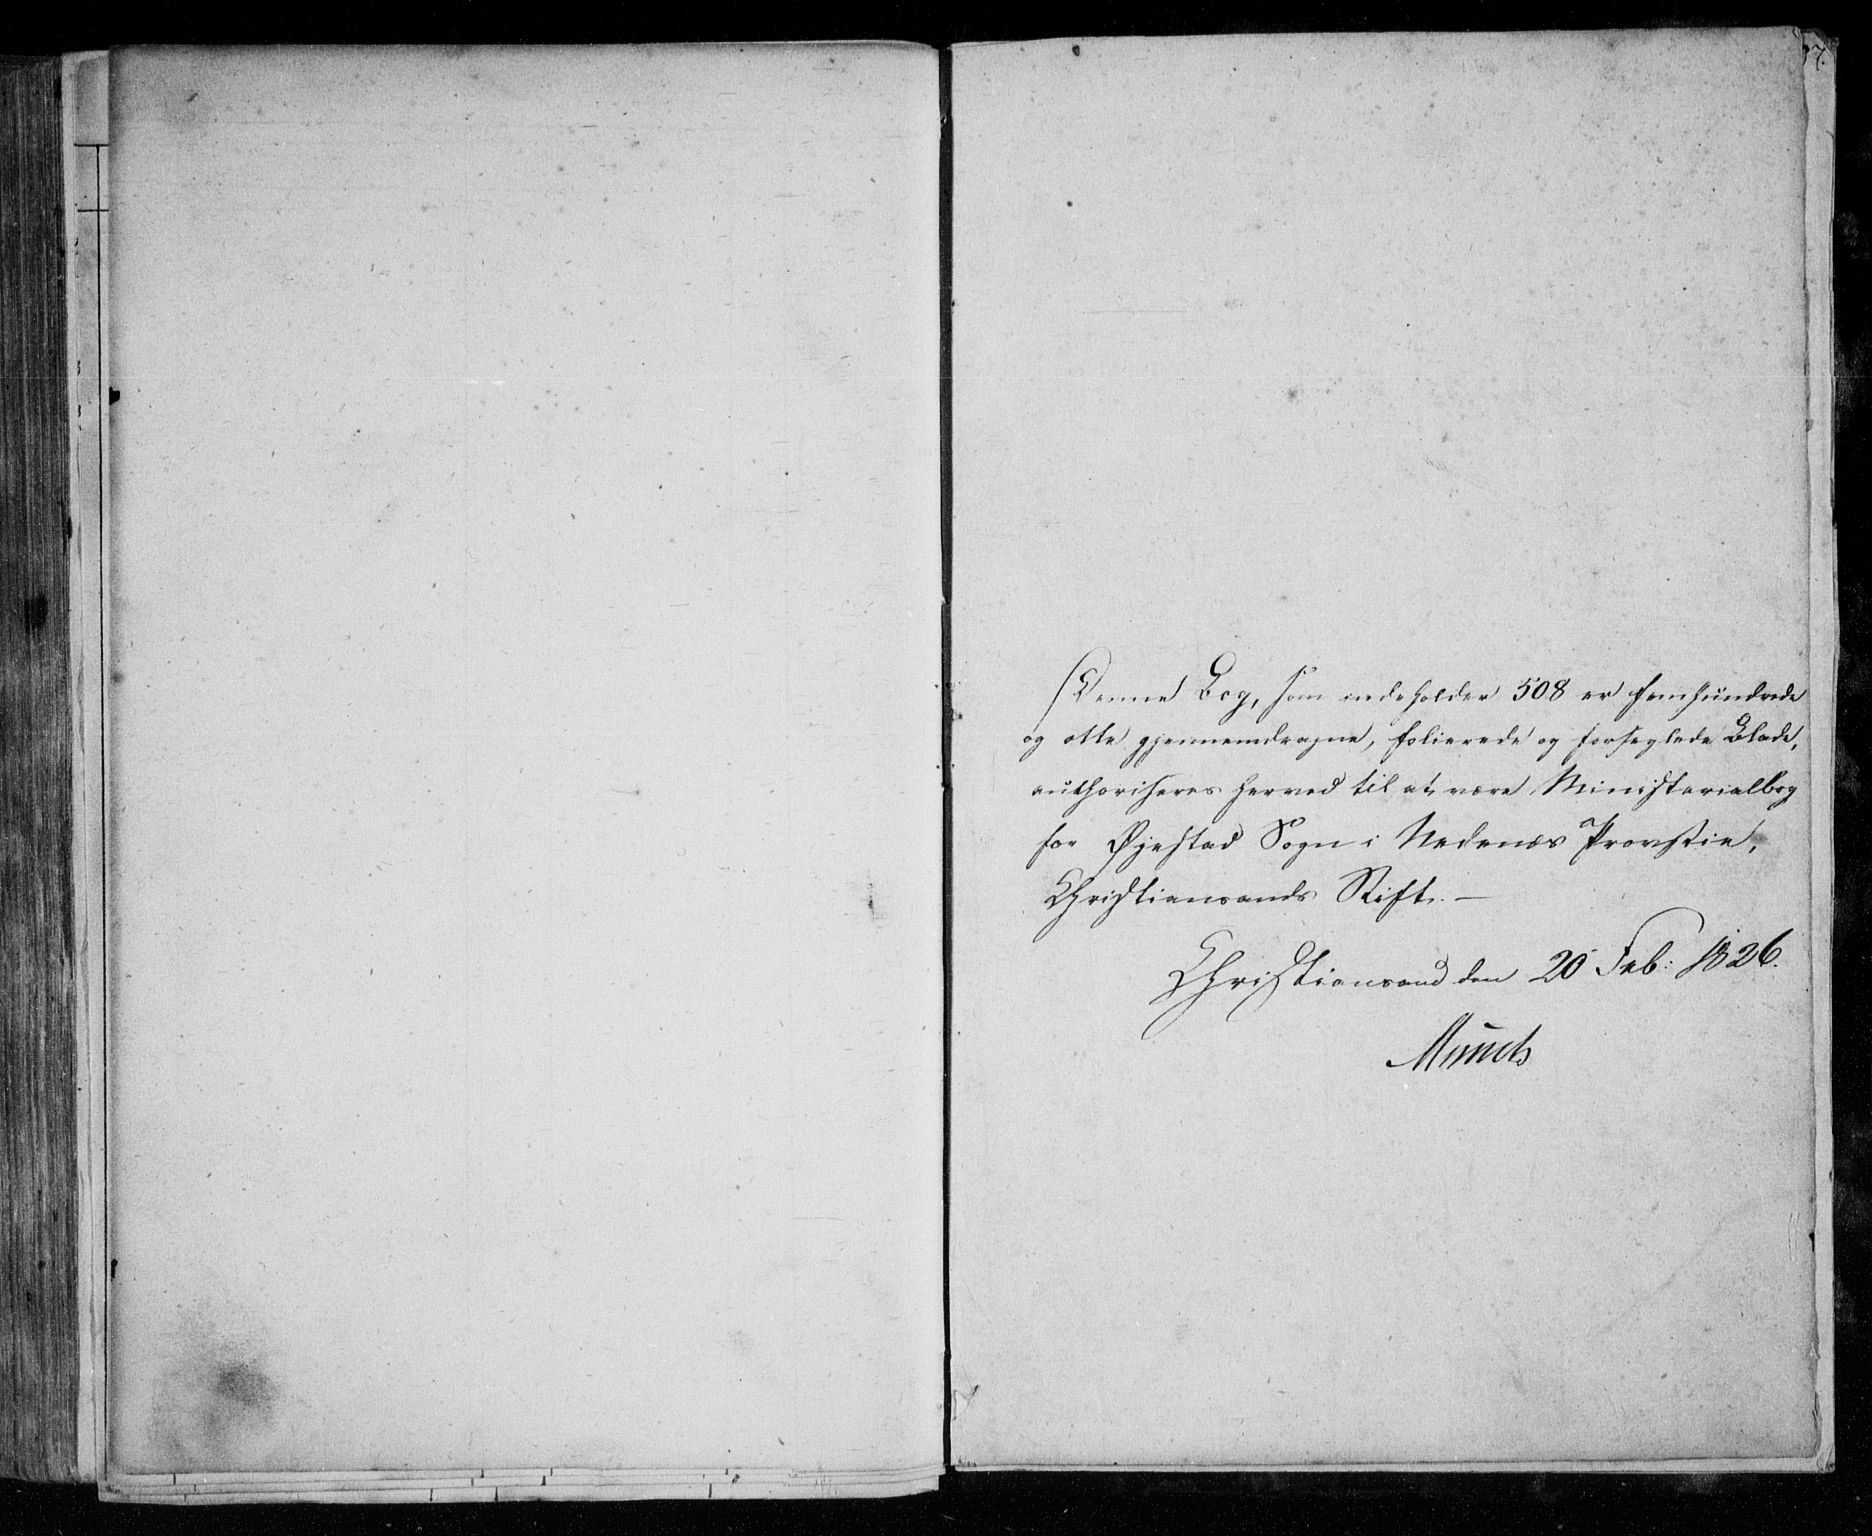 Denne Bog, som indeholder 508 er femhundrede
og otte gjennemdragne, folierede og forseglede Blade,
authoriseres herved til at være Ministerialbog
for Øjestad Sogn i Nedenæs Provstie,
Christiansands Stift. —
Christiansand den 20 Feb: 1826.
Munch